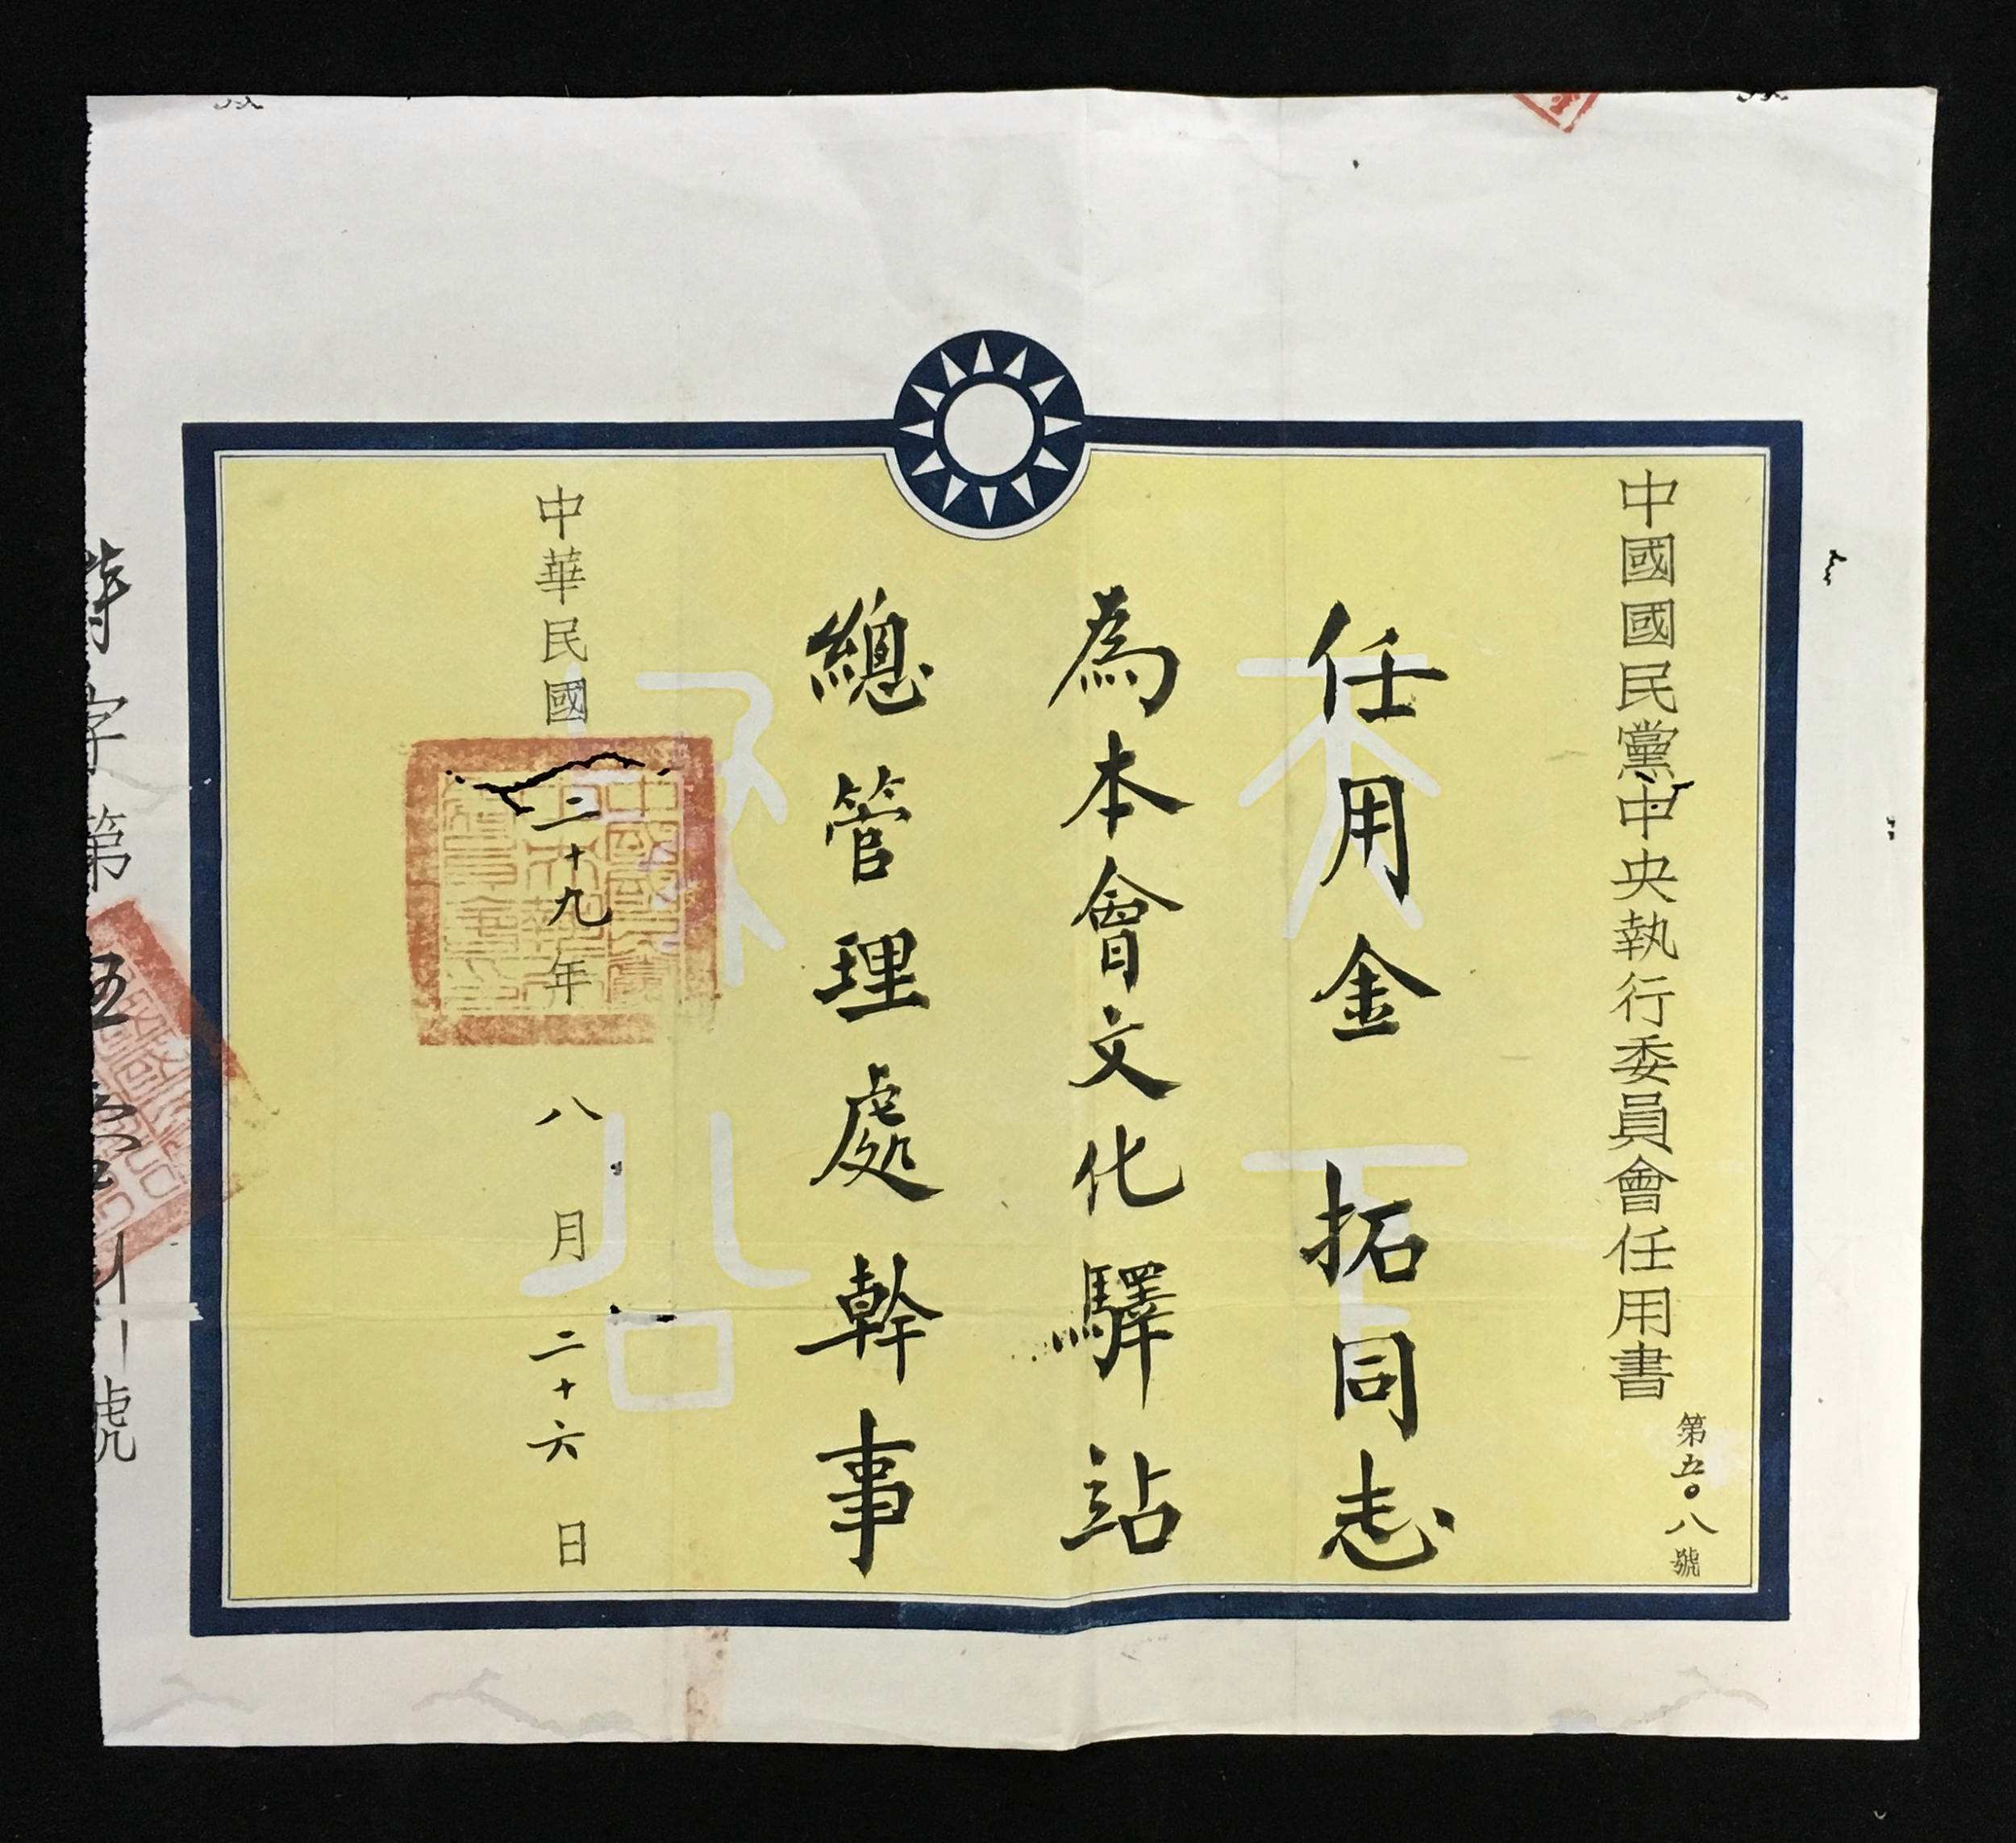 中國國民黨中央執行委員會任用書
第五〇八號
任用金拓同志
為本會文化驛站
總管理處幹事
中華民國二十九年八月二十六日
天下為公
字第五
號